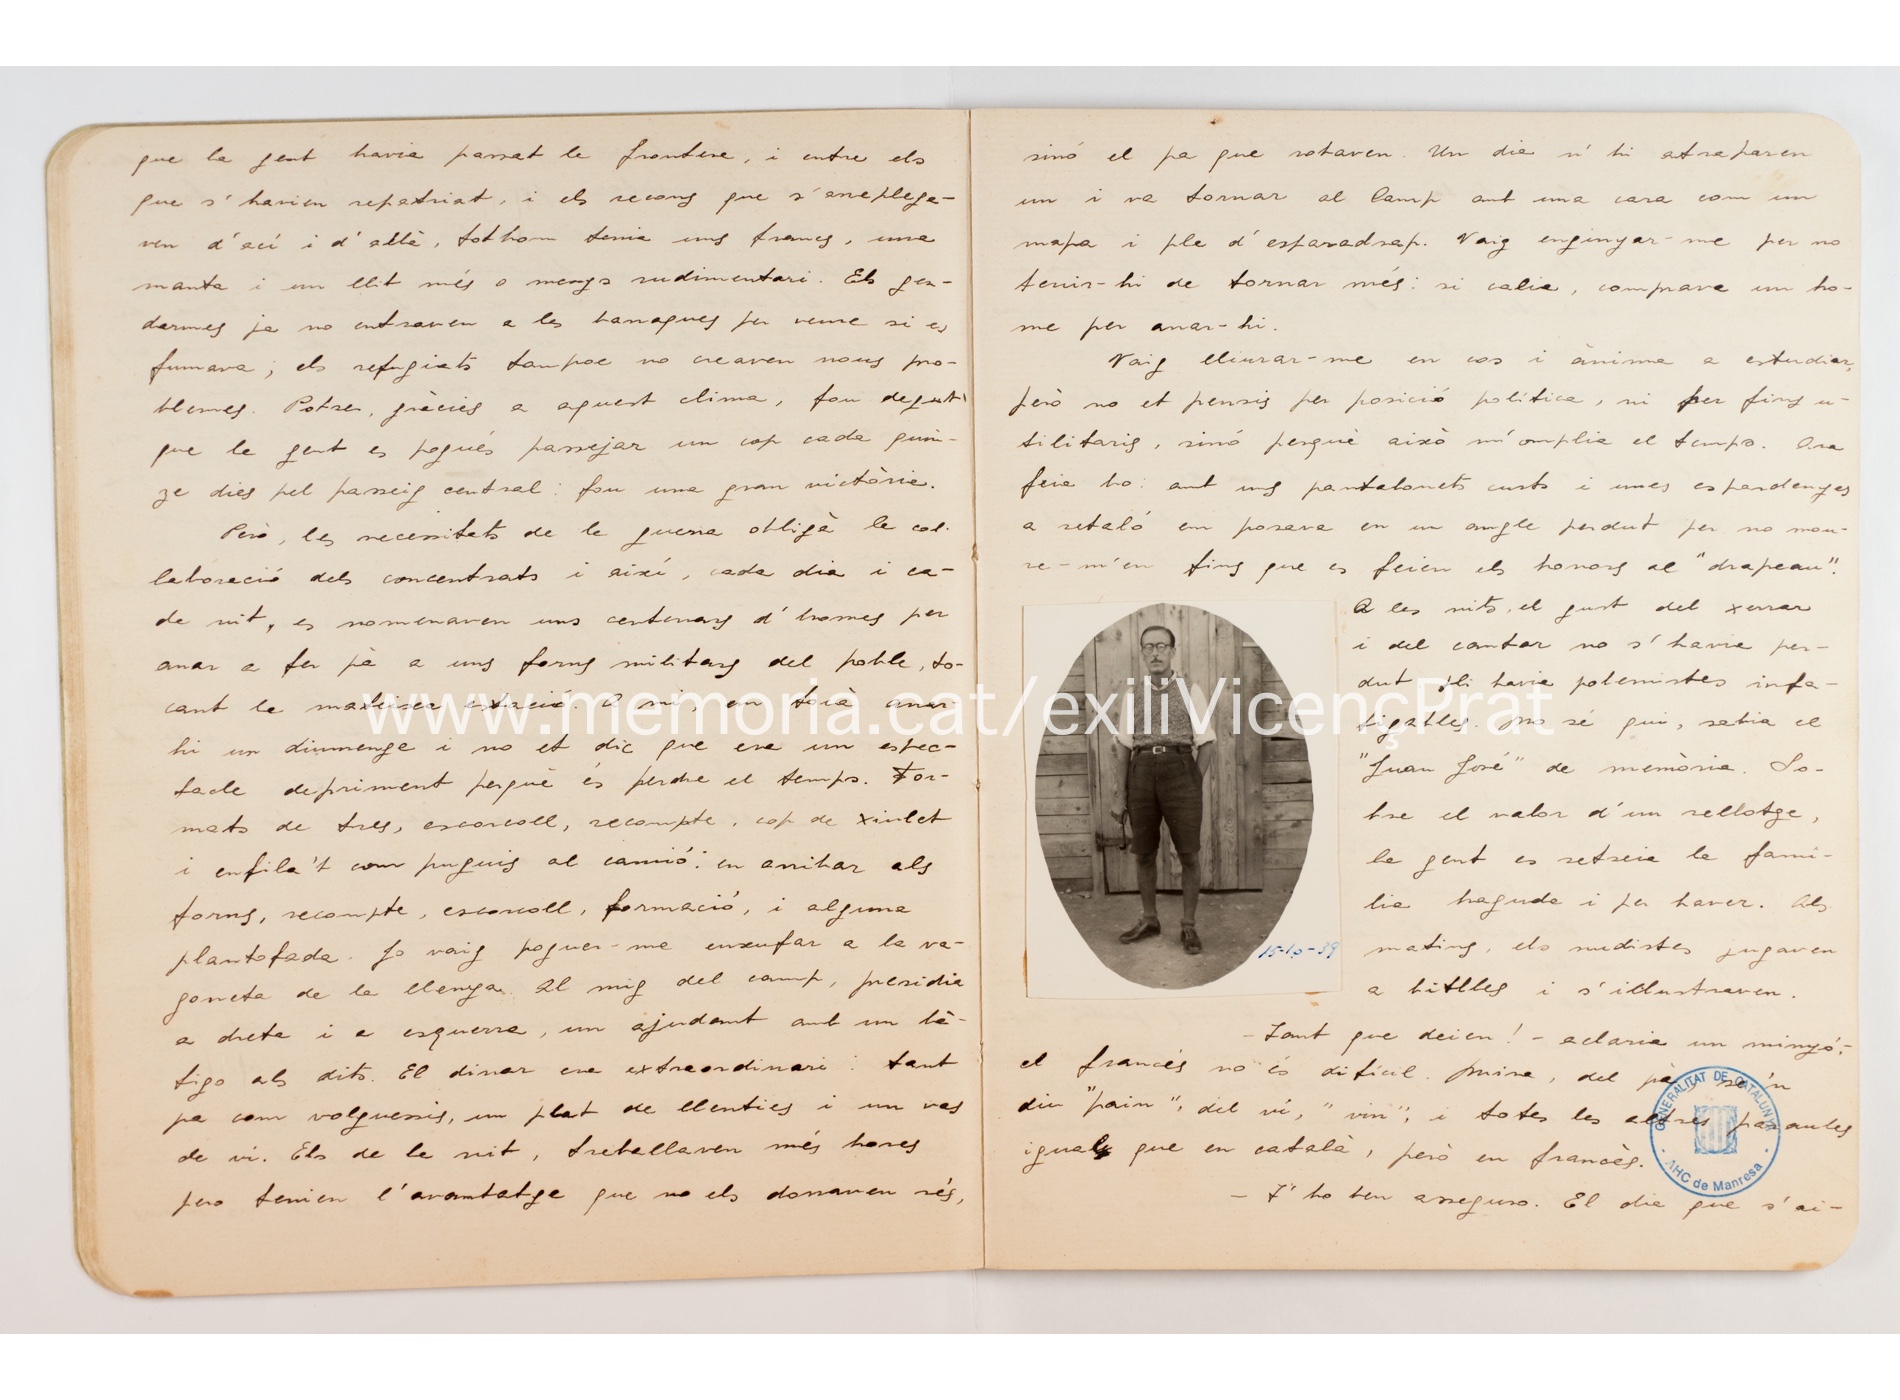 que la gent havia passat la frontera, i entre els
que s'havien repatriat, i els recons que s'arreplega-
ven d'ací i d'allà, tothom tenia uns francs, una
manta i un llit més o menys rudimentari. Els gen-
darmes ja no entraven a les barraques per veure si es
fumava; els refugiats tampoc no creaven nous pro-
blemes. Potser, gràcies a aquest clima, fou degut
que la gent es pogués passejar un cop cada quin-
ze dies pel passeig central: fou una gran victòria.
Però, les necessitats de la guerra obligà la col.
laboració dels concentrats i així, cada dia i ca-
da nit, es nomenaven uns centenars d'homes per
anar a fer pà a uns forns militars del poble, to-
cant la mateixa estació. A mi, em tocà anar-
hi un diumenge i no et dic que era un espec-
tacle depriment perquè és perdre el temps. For-
mats de tres, escorcoll, recompte, cop de xiulet
i enfila't com puguis al camió: en arribar als
forns, recompte, escorcoll, formació, i alguna
plantofada. Jo vaig poguer-me enxufar a la va-
goneta de la llenya. Al mig del camp, presidia
a dreta i a esquerra, un ajudant amb un là-
tigo als dits. El dinar era extraordinari: tant
pa com volguessis, un plat de llenties i un vas
de vi. Els de la nit, treballaven més hores
pero tenien l'avantatge que no els donaven rés,
sinó el pa que robaven. Un dia n'hi atraparen
un i va tornar al Camp amb una cara com un
mapa i ple d'esparadrap. Vaig enginyar-me per no
tenir-hi de tornar més: si calia, comprava un ho-
me per anar-hi.
Vaig lliurar-me en cos i ànima a estudiar,
però no et pensis per posició política, ni per fins u-
tilitaris, sinó perquè això m'omplia el temps. Ara
feia bo: amb uns pantalonets curts i unes espardenyes
a retaló em posava en un angle perdut per no mou-
re-m'en fins que es feien els honors al "drapeau".
A les nits, el gust del xerrar
i del cantar no s'havia per-
dut. Hi havia polemistes infa-
tigables. No sé qui, sabia el
"Juan José" de memòria. So-
bre el valor d'un rellotge,
la gent es retreia la famí-
lia haguda i per haver. Als
matins, els nudistes jugaven
a bitlles i s'illustraven.
15-10-39
- Tant que deien! - aclaria un minyó;-
el francès no és difícil. Mira, del pà, se'n
diu "pain", del ví, "vin", i totes les altres paraules
iguals que en català, però en francès.
- T'ho ben asseguro. El dia que s'ai-
GENERALITAT DE CATALUNYA
AHC de Manresa
www.memoria.cat/exiliVicençPrat